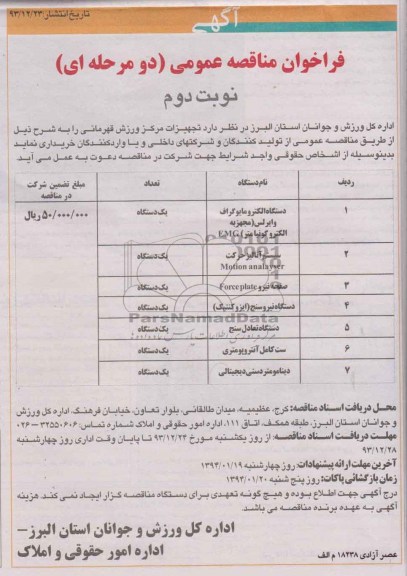 آگهی
تاریخ انتشار: ۹۳/۱۲/۲۳
فراخوان مناقصه عمومی (دو مرحله ای)
نوبت دوم
اداره کل ورزش و جوانان استان البرز در نظر دارد تجهیزات مرکز ورزش قهرمانی را به شرح ذیل
از طریق مناقصه عمومی از تولید کنندگان و شرکتهای داخلی و یا واردکنندگان خریداری نماید
بدینوسیله از اشخاص حقوقی واجد شرایط جهت شرکت در مناقصه دعوت به عمل می آید.
ردیف نام دستگاه تعداد مبلغ تضمین شرکت در مناقصه
۱ دستگاه الکترومایوگراف وایرلس (مجهز به الکتروگونیا متر) EMG یک دستگاه ۵۰/۰۰۰/۰۰۰ ریال
۲ آنالیز حرکت Motion analayser یک دستگاه
۳ صفحه نیرو Force plate یک دستگاه
۴ دستگاه نیروسنج (ایزوکنتیک) یک دستگاه
۵ دستگاه تعادل سنج یک دستگاه
۶ ست کامل آنتروپومتری یک دستگاه
۷ دینامومتر دستی دیجیتالی یک دستگاه
ParsNamadData
محل دریافت اسناد مناقصه: کرج، عظیمیه، میدان طالقانی، بلوار تعاون، خیابان فرهنگ، اداره کل ورزش
و جوانان استان البرز، طبقه همکف، اتاق ۱۱۱، اداره امور حقوقی و املاک شماره تماس: ۳۲۵۵۰۶۰۶ – ۰۲۶
مهلت دریافت اسناد مناقصه: از روز یکشنبه مورخ ۹۳/۱۲/۲۴ تا پایان وقت اداری روز چهارشنبه
۹۳/۱۲/۲۸
آخرین مهلت ارائه پیشنهادات: روز چهارشنبه ۱۳۹۴/۰۱/۱۹
زمان بازگشائی پاکات: روز پنج شنبه ۱۳۹۴/۰۱/۲۰
درج آگهی جهت اطلاع بوده و هیچ گونه تعهدی برای دستگاه مناقصه گزار ایجاد نمی کند. هزینه
آگهی به عهده برنده مناقصه می باشد.
اداره کل ورزش و جوانان استان البرز –
اداره امور حقوقی و املاک
عصر آزادی ۱۸۲۳۸ م الف